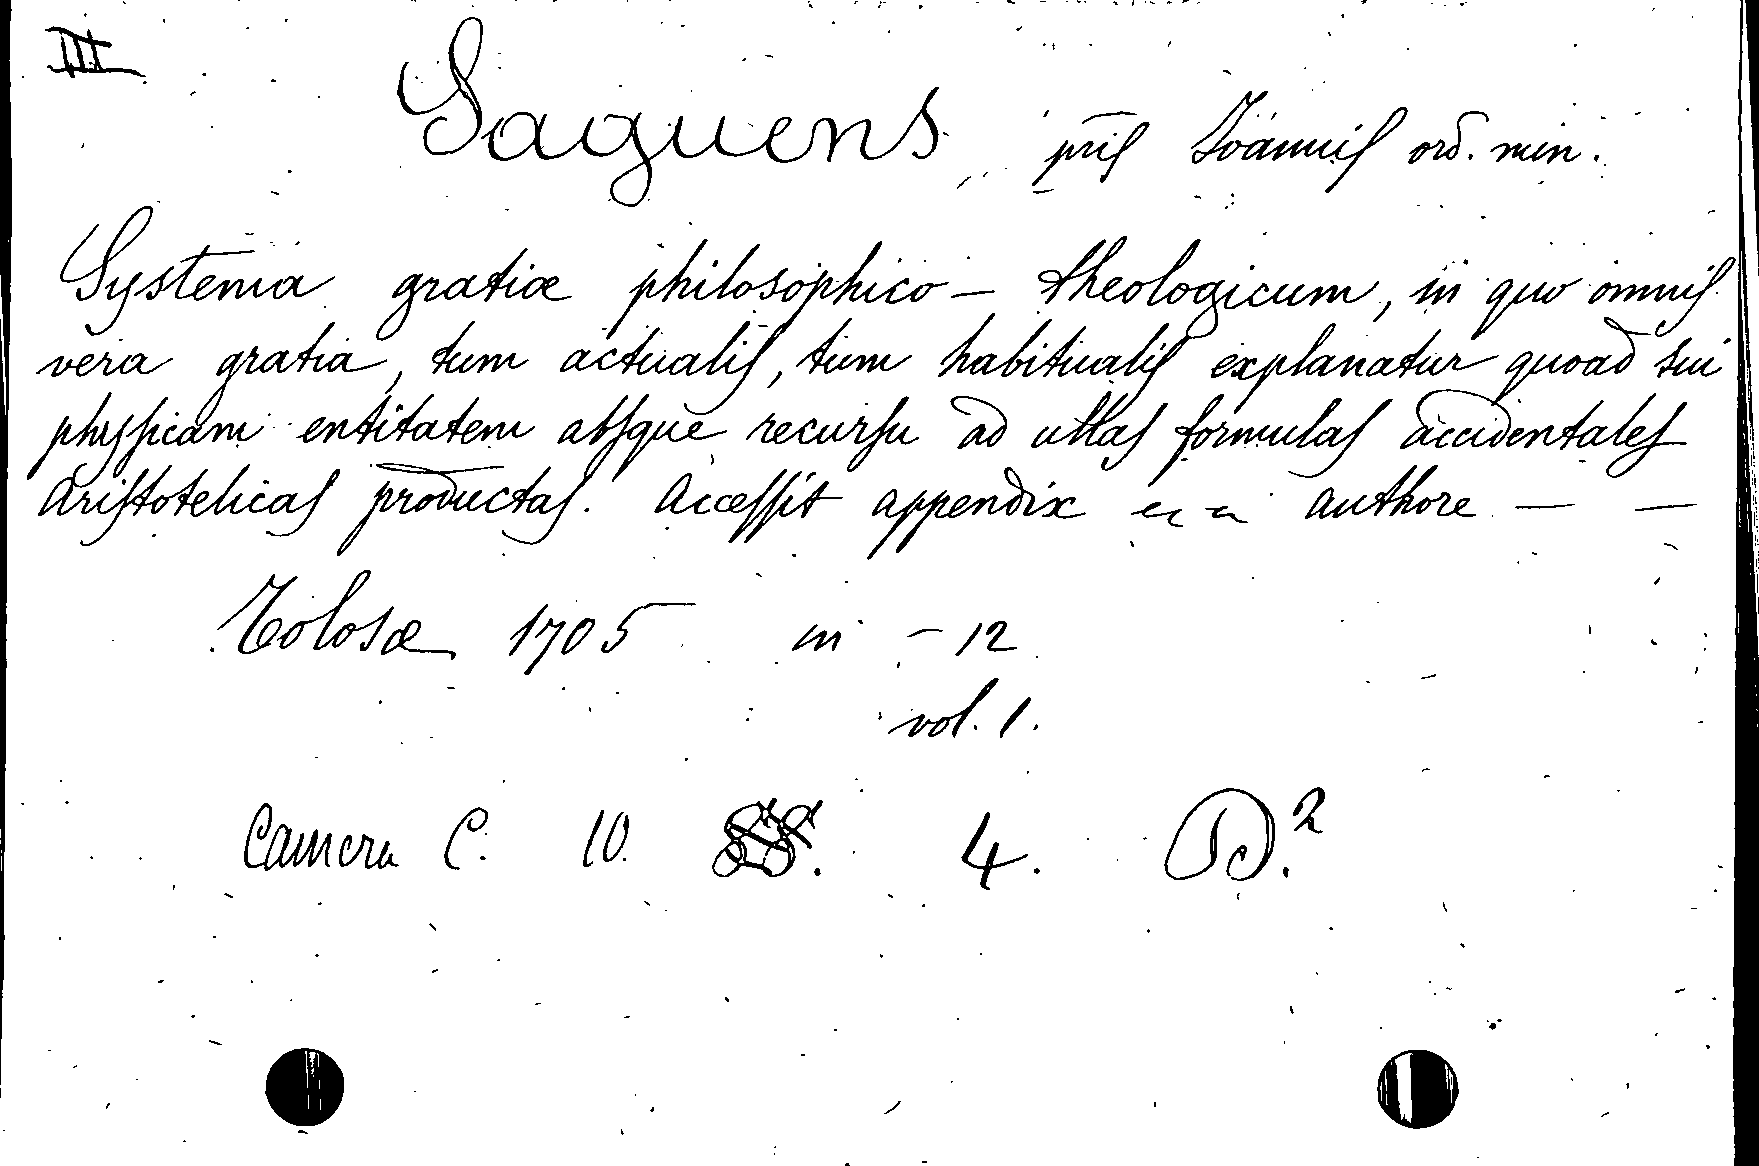 III
Saguens p̄ris Ioannis ord. min.
Systema gratiæ philosophico - theologicum, in quo omnis
vera gratia, tum actualis, tum habitualis explanatur quoad sui
physsicam entitatem absque recursu ad ullas formulas accidentales
Aristotelicas productas. Accessit appendix authore — —
Tolosæ 1705 in - 12
vol. 1.
Camera C. 10. 4. D.²